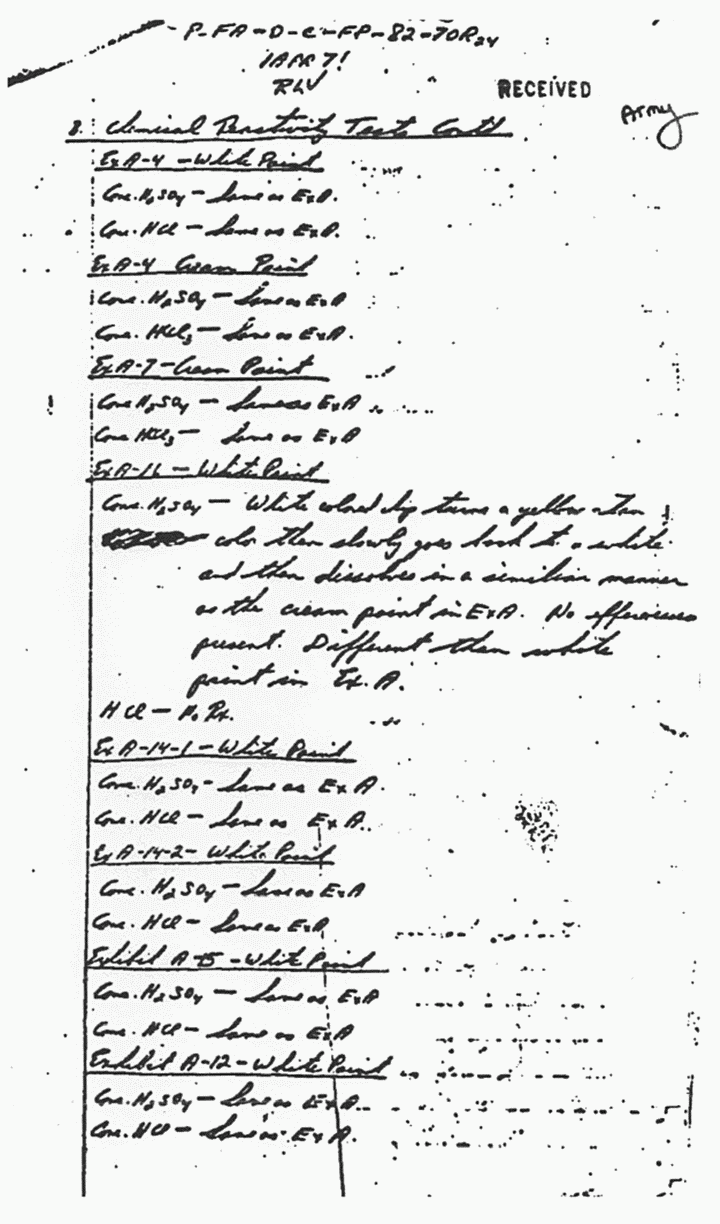 P-FA-D-C-FP-82-70R24
1APR71
RLV
RECEIVED
Army
8. Chemical Reactivity Tests Cont'd
Ex A-4 - White Paint
Conc. H2SO4 - Same as Ex A.
Conc. HCl - Same as Ex A.
Ex A-4 Cream Paint
Conc. H2SO4 - Same as Ex A
Conc. HCl3 - Same as Ex A.
Ex A-7 - Cream Paint
Conc H2SO4 - Same as Ex A
Conc HCl3 - Same as Ex A
Ex A-16 - White Paint
Conc. H2SO4 - White colored chip turns a yellow-tan
color then slowly goes back to a white
and then dissolves in a similiar manner
as the cream paint in Ex A. No
present. Different than white
paint in Ex. A.
HCl - No Rx.
Ex A-14-1 - White Paint
Conc. H2SO4 - Same as Ex A.
Conc. HCl - Same as Ex A.
Ex A-14-2 - White Paint
Conc. H2SO4 - Same as Ex A
Conc. HCl - Same as Ex A
Exhibit A-15 - White Paint
Conc. H2SO4 - Same as Ex A
Conc. HCl - Same as Ex A
Exhibit A-12 - White Paint
Conc. H2SO4 - Same as Ex A.
Conc. HCl - Same as Ex A.